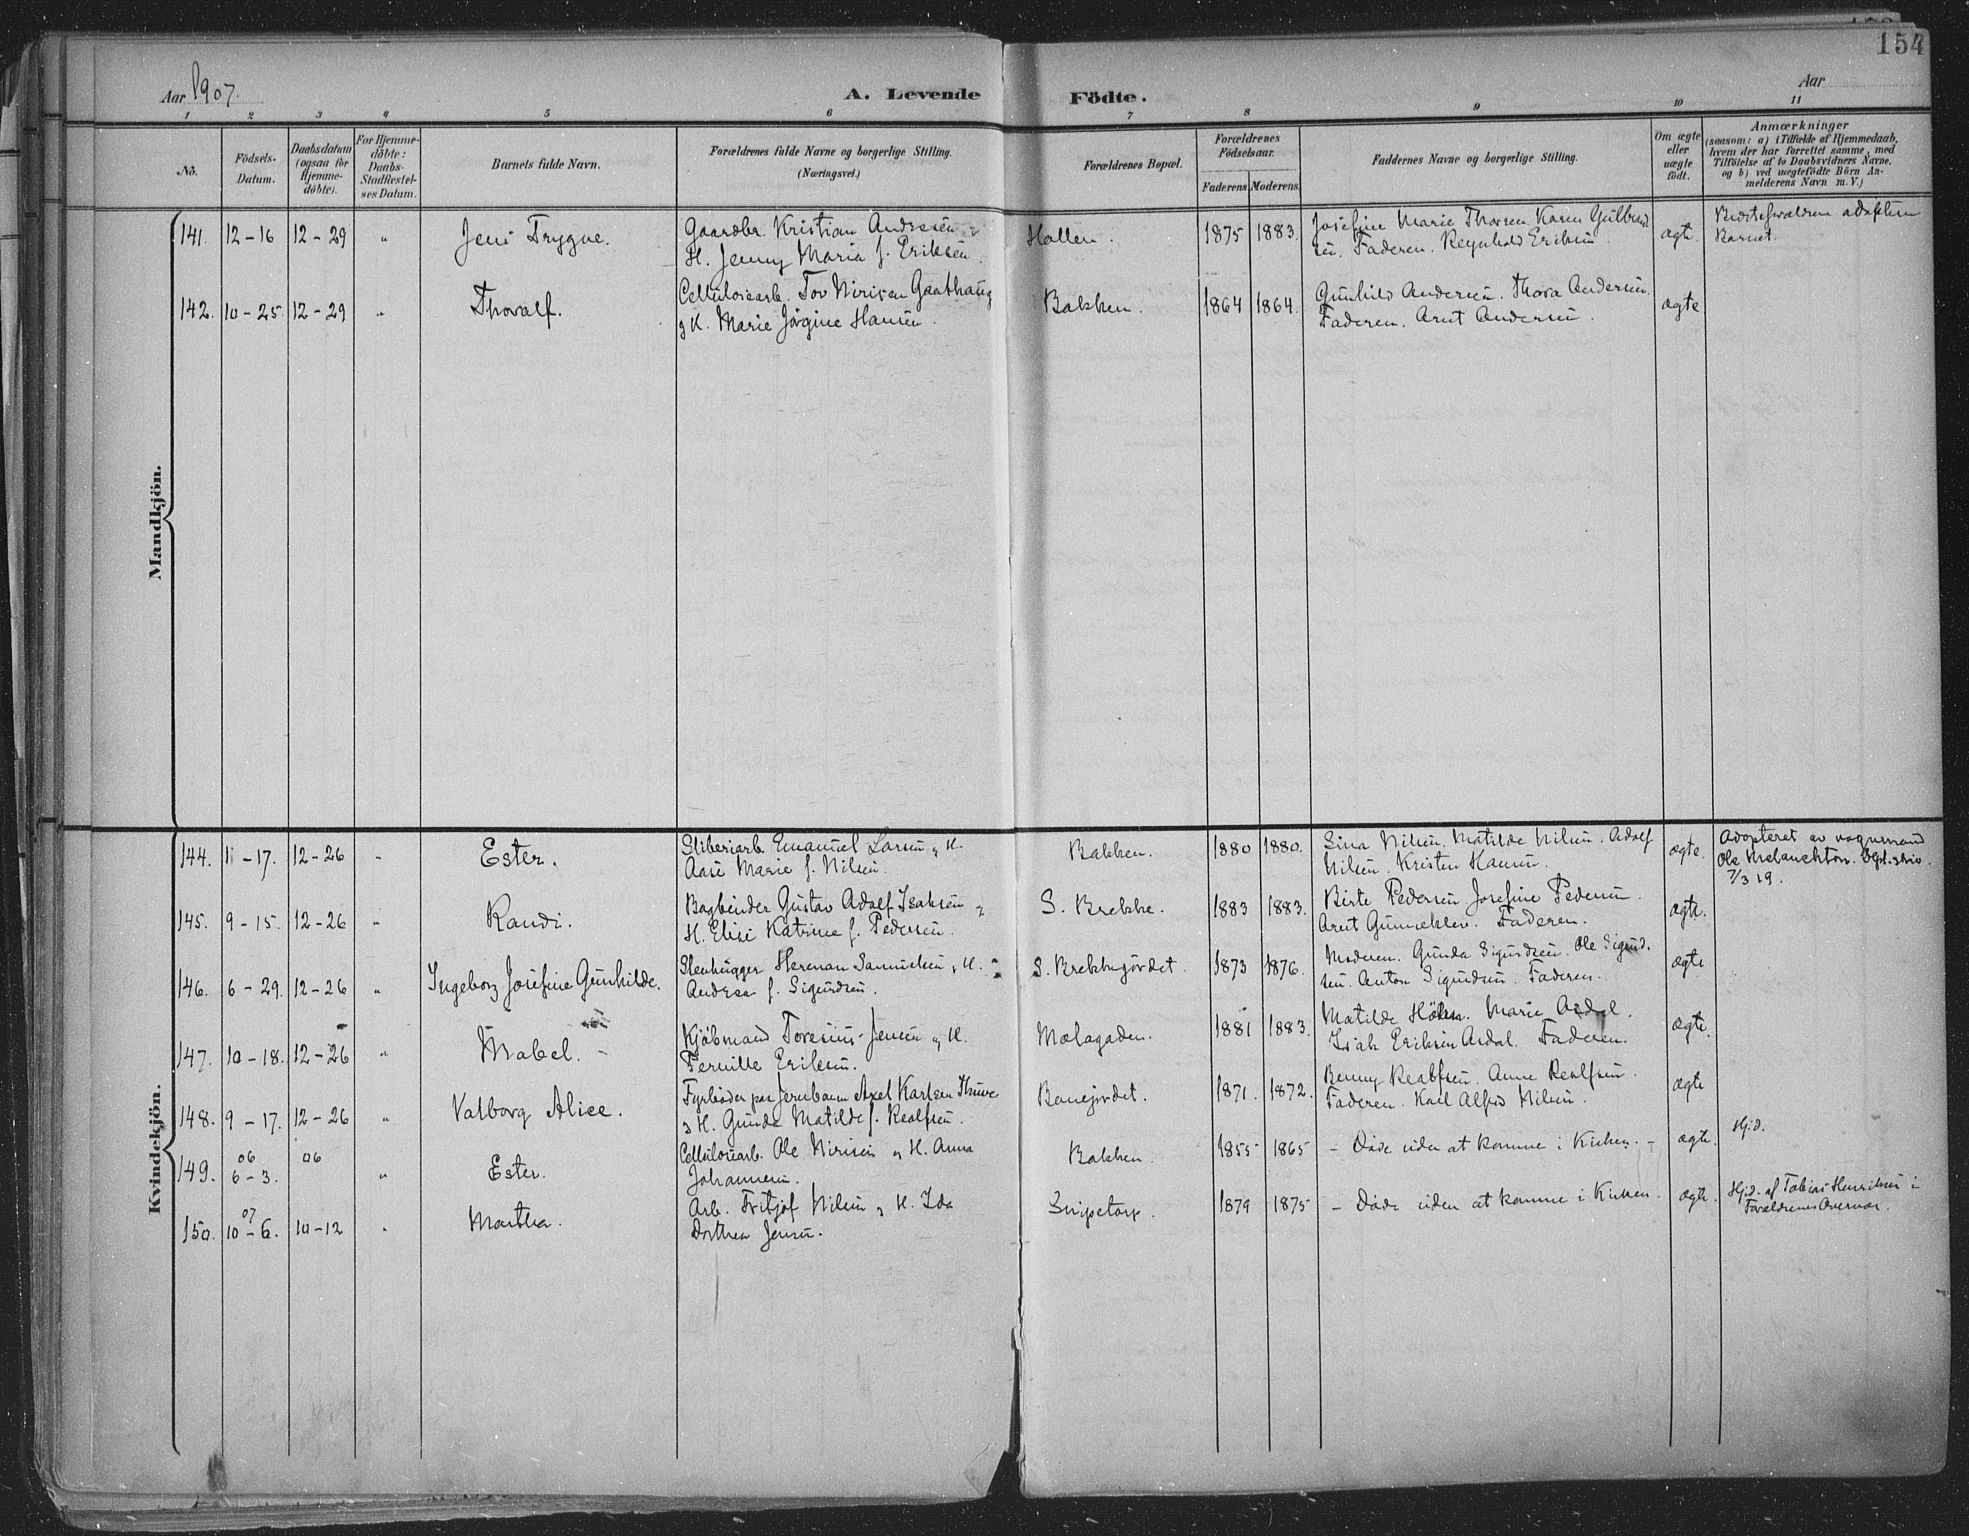 154
Aar 1907.
A. Levende Födte.
Aar
1 2 3 4 5 6 7 8 9 10 11
No.
Födsels-
Datum.
Daabsdatum
(ogsaa for
Hjemme-
döbte).
For Hjemme-
döbte:
Daabs-
Stadfæstel-
ses Datum.
Barnets fulde Navn.
Forældrenes fulde Navne og borgerlige Stilling.
(Næringsvei.)
Forældrenes Bopæl.
Forældrenes
Födselsaar.
Faderens. Moderens.
Faddernes Navne og borgerlige Stilling.
Om ægte
eller
uægte
födt.
Anmærkninger
(saasom: a) i Tilfælde af Hjemmedaab,
hvem der har forrettet samme, med
Tilföielse af to Daabsvidners Navne,
og b) ved uægtefödte Börn An-
melderens Navn m. V.)
Mandkjön.
141. 12-16 12-29 " Jens Trygve.
Gaardbr. Kristian Andersen &
H. Jenny Maria f. Eriksen.
Hollen. 1875 1883.
Josefine Marie Thorsen. Karen Gulbrand
sen. Faderen. Reynhold Eriksen
ægte.
adoptern
Barnet.
142. 10-25. 12-29 " Thoralf.
Cellulosearb. Tov Nirisen Gaathaug
& K. Marie Jörgine Hansen.
Bakken. 1864 1864.
Gunhild Andersen. Thora Andersen.
Faderen. Arnt Andersen.
ægte
Kvindekjön.
144. 11-17. 12-26 " Ester.
Sliberiarb. Emanuel Larsen & H.
Aase Marie f. Nilsen.
Bakken. 1880 1880.
Sina Nilsen. Matilde Nilsen. Adolf
Nilsen. Kristen Hansen.
ægte.
Adopteret av vognmand
Ole Melanchton.
7/3 19.
145. 9-15. 12-26 " Randi.
Bogbinder Gustav Adolf Isaksen &
H. Elise Katrine f. Pedersen.
S. Brekke. 1883 1883.
Birte Pedersen. Josefine Pedersen.
Arnt Gunneklev. Faderen.
ægte.
146. 6-29. 12-26 " Ingeborg Josefine Gunhilde.
Stenhugger Herman Samuelsen & H.
Andrea f. Sigurdsen.
S. Brekkejordet. 1873 1876.
Moderen. Gunda Sigurdsen. Ole Sigurd.
sen. Anton Sigurdsen. Faderen.
ægte
147. 10-18. 12-26 " Mabel.
Kjöbmand Toresius Jensen & H.
Pernille Eriksen.
Mælagaden. 1881 1883.
Matilde Holm. Marie Asdal.
Isak Eriksen Asdal. Faderen.
ægte.
148. 9-17. 12-26 " Valborg Alice.
Fyrböder paa Jernbanen Axel Karlsen Thuve
& H. Gunda Matilde f. Realfsen.
Banejordet. 1871. 1872.
Benny Realfsen. Anne Realfsen.
Faderen. Karl Alfred Nilsen.
ægte
149. 06 6-3. 06 " Ester.
Cellulosearb. Ole Nirisen & H. Anna
Johannesen.
Bakken. 1855 1865
- Döde uden at komme i Kirken. -
ægte.
Hjd.
150. 07 10-6. 10-12 " Martha.
Arb. Fritjof Nilsen & H. Ida
Dorthea Jensen.
Snipetorp. 1879 1875
- Döde uden at komme i Kirken.
ægte.
Hjd. af Tobias Henriksen i
Forældrenes Overvær.